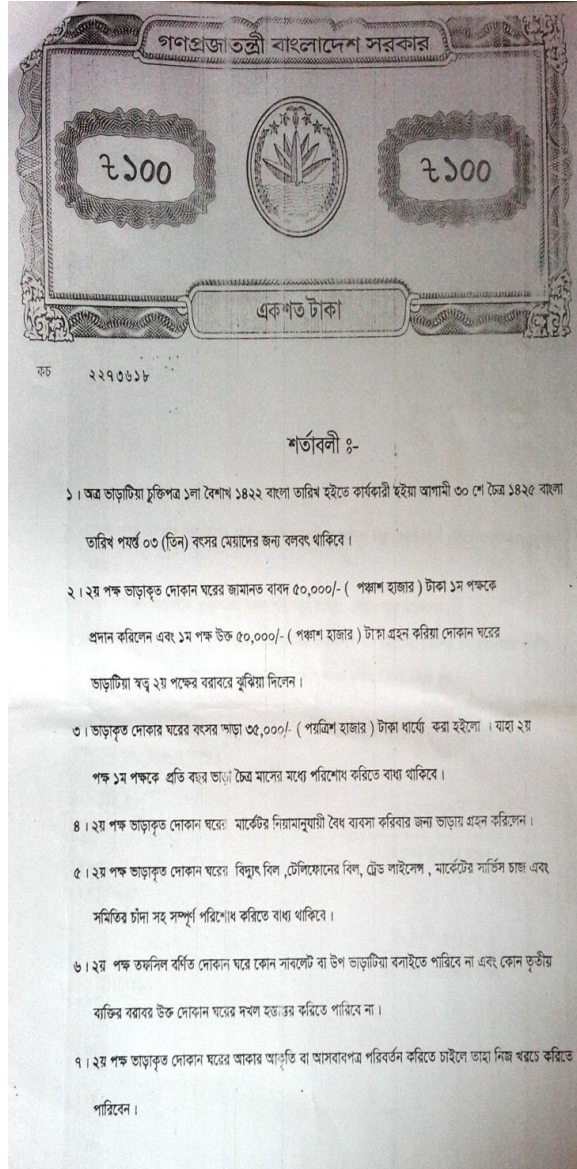 গণপ্রজাতন্ত্রী বাংলাদেশ সরকার
৳১০০
৳১০০
একশত টাকা
কচ ২২৭৩৬১৮
শর্তাবলী ঃ-
১। অত্র ভাড়াটিয়া চুক্তিপত্র ১লা বৈশাখ ১৪২২ বাংলা তারিখ হইতে কার্যকারী হইয়া আগামী ৩০ শে চৈত্র ১৪২৫ বাংলা
তারিখ পযর্ন্ত ০৩ (তিন) বৎসর মেয়াদের জন্য বলবৎ থাকিবে।
২। ২য় পক্ষ ভাড়াকৃত দোকান ঘরের জামানত বাবদ ৫০,০০০/- ( পঞ্চাশ হাজার ) টাকা ১ম পক্ষকে
প্রদান করিলেন এবং ১ম পক্ষ উক্ত ৫০,০০০/- ( পঞ্চাশ হাজার ) টাকা গ্রহন করিয়া দোকান ঘরের
ভাড়াটিয়া স্বত্ব ২য় পক্ষের বরাবরে বুঝিয়া দিলেন।
৩। ভাড়াকৃত দোকার ঘরের বৎসর ভাড়া ৩৫,০০০/- ( পয়ত্রিশ হাজার ) টাকা ধার্য্যে করা হইলো । যাহা ২য়
পক্ষ ১ম পক্ষকে প্রতি বছর ভাড়া চৈত্র মাসের মধ্যে পরিশোধ করিতে বাধ্য থাকিবে।
৪। ২য় পক্ষ ভাড়াকৃত দোকান ঘরের মার্কেটর নিয়মানুযায়ী বৈধ ব্যবসা করিবার জন্য ভাড়ায় গ্রহন করিলেন।
৫। ২য় পক্ষ ভাড়াকৃত দোকান ঘরের বিদ্যুৎ বিল ,টেলিফোনের বিল, ট্রেড লাইসেন্স , মার্কেটের সার্ভিস চার্জ এবং
সমিতির চাঁদা সহ সম্পূর্ণ পরিশোধ করিতে বাধ্য থাকিবে।
৬। ২য় পক্ষ তফসিল বর্ণিত দোকান ঘরে কোন সাবলেট বা উপ ভাড়াটিয়া বসাইতে পারিবে না এবং কোন তৃতীয়
ব্যক্তির বরাবর উক্ত দোকান ঘরের দখল হস্তান্তর করিতে পারিবে না।
৭। ২য় পক্ষ ভাড়াকৃত দোকান ঘরের আকার আকৃতি বা আসবাবপত্র পরিবর্তন করিতে চাইলে তাহা নিজ খরচে করিতে
পারিবেন।